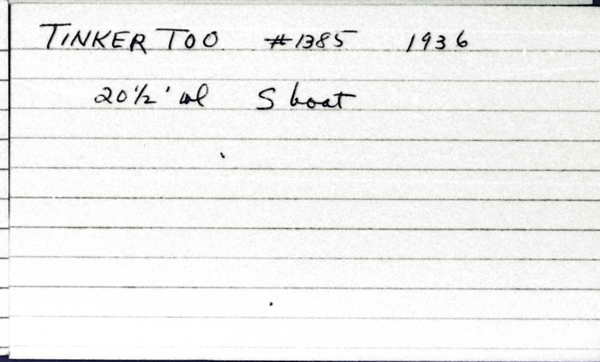 TINKER TOO #1385 1936
20 1/2' wl S boat